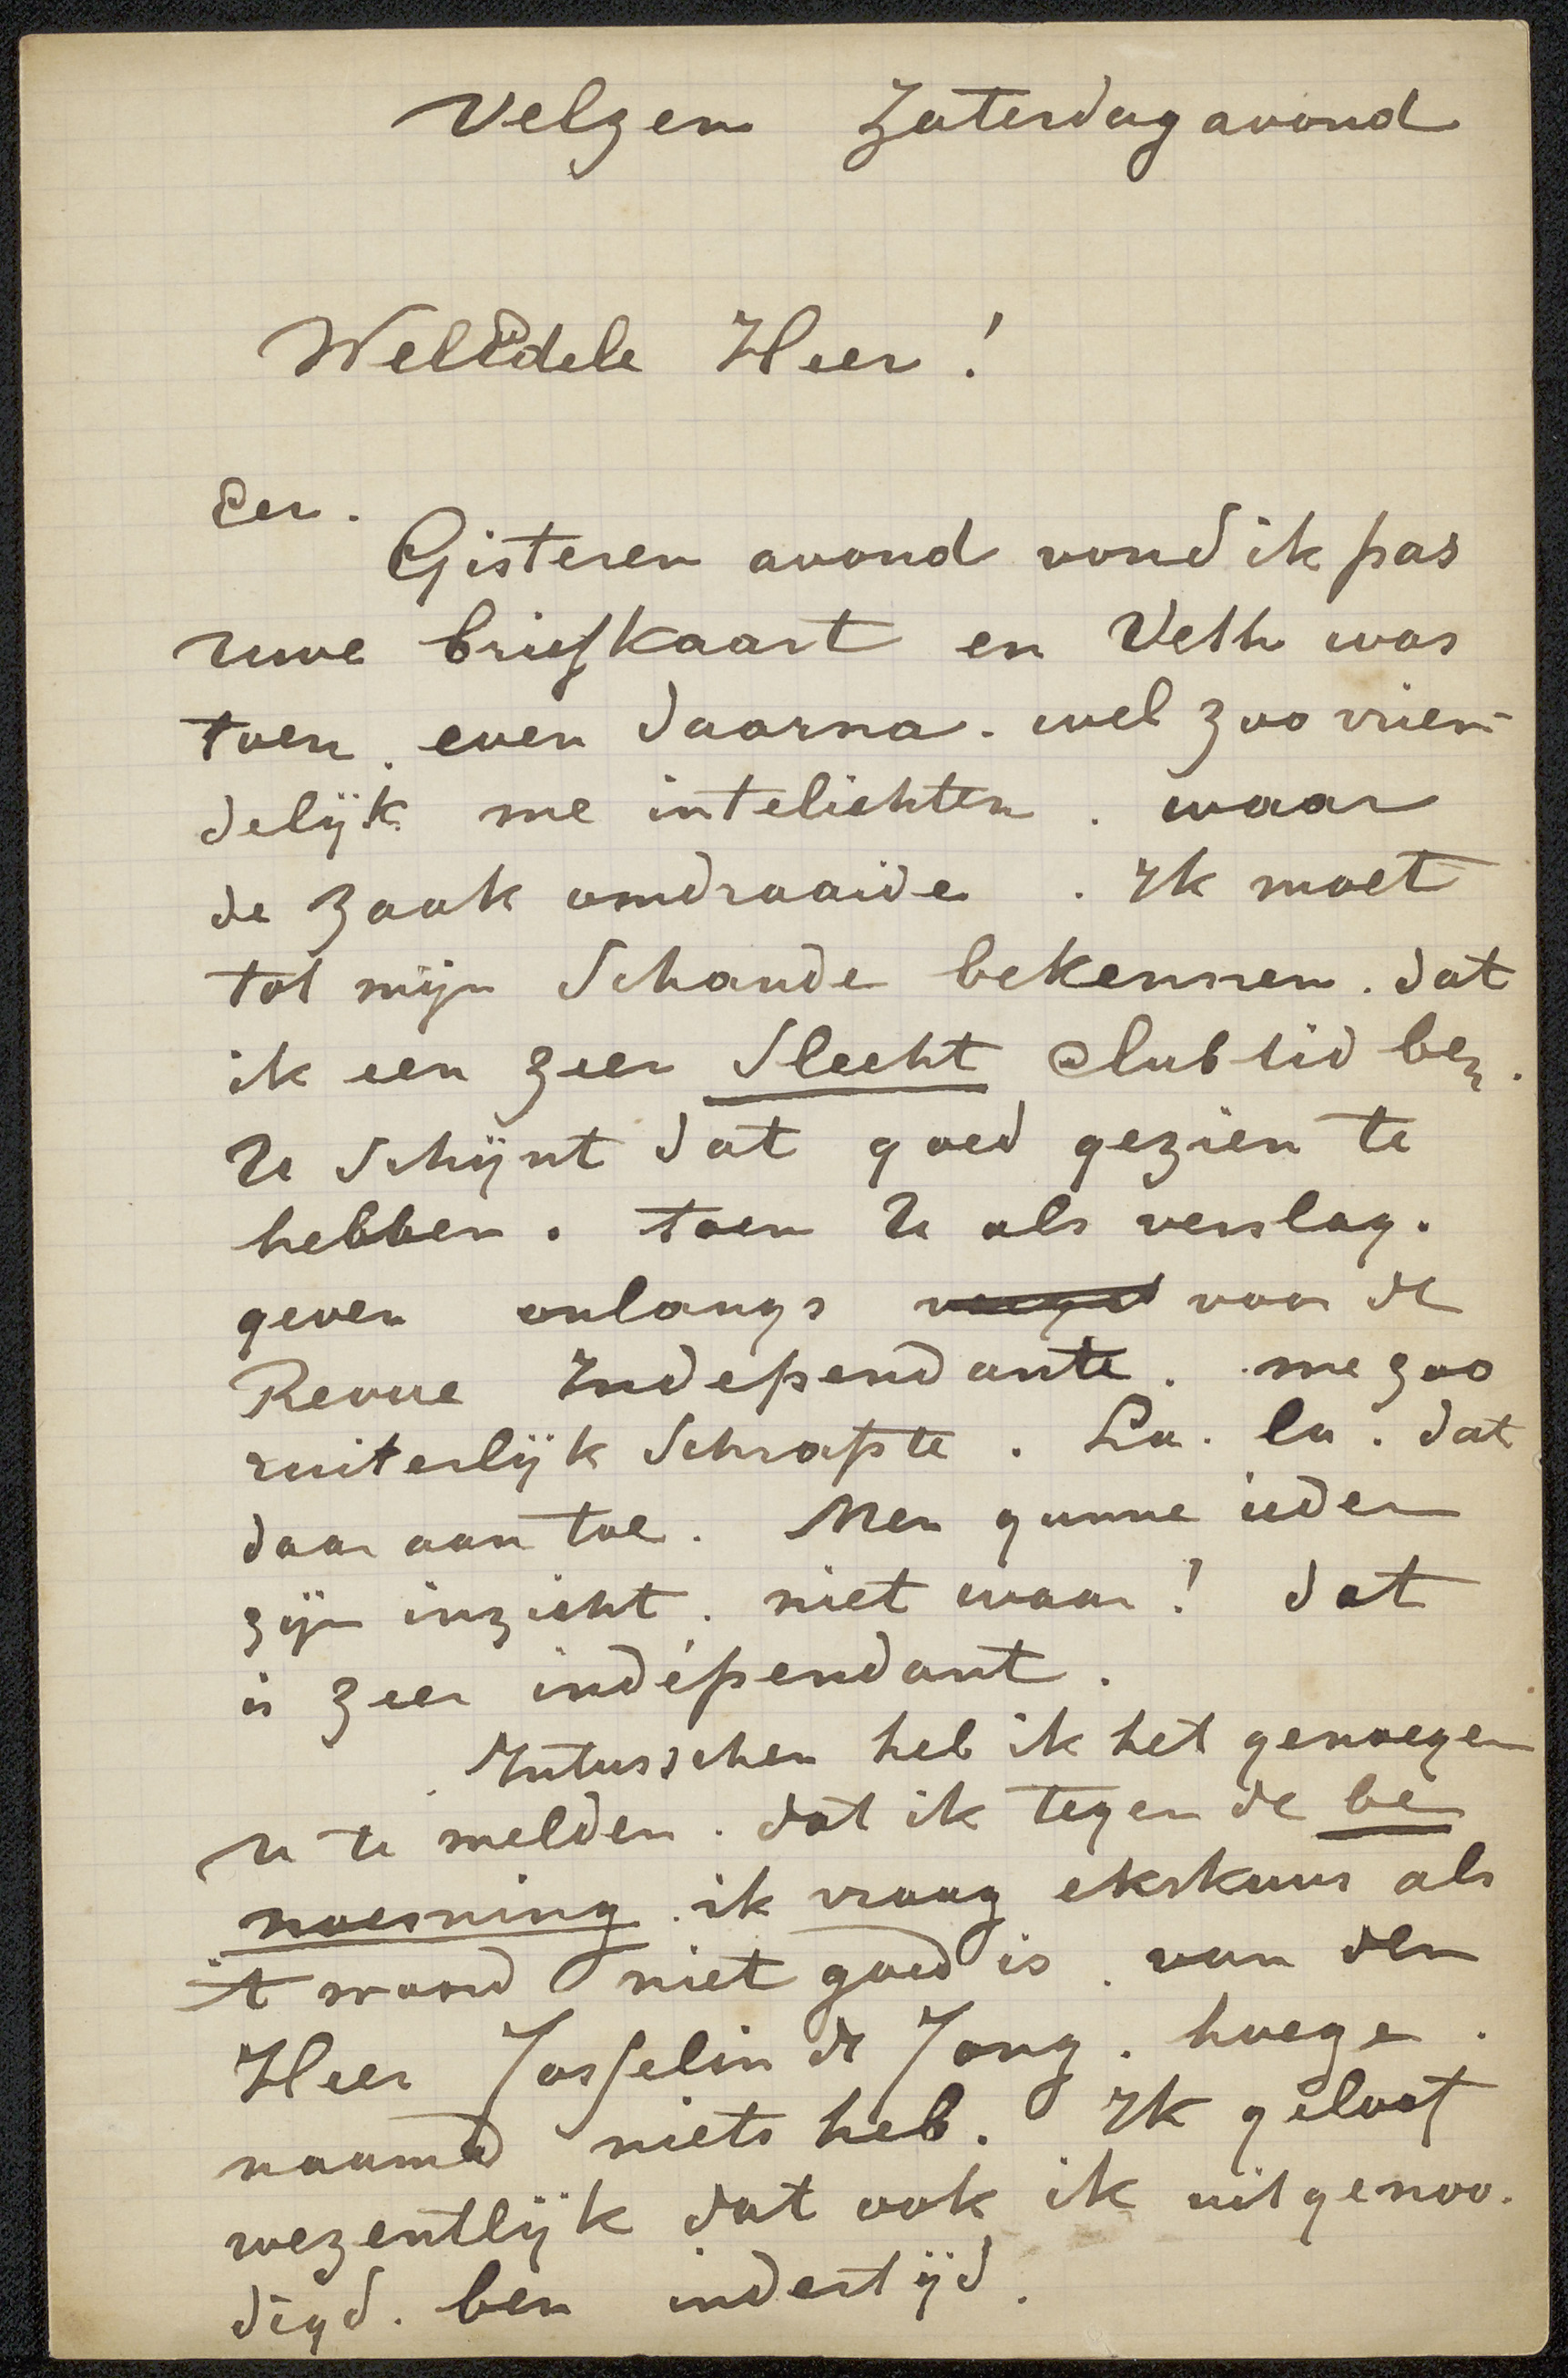 Velzen Zaterdagavond
WelEdele Heer!
Eer.
Gisteren avond vond ik pas
uwe briefkaart en Veth was
toen. even daarna. wel zoo vrien-
delijk me intelichten. waar
de zaak omdraaide. Ik moet
tot mijn schande bekennen. dat
ik een zeer slecht clublid ben.
U schijnt dat goed gezien te
hebben. toen U als verslag.
gever onlangs voor de
Revue Independante. me zoo
ruiterlijk schrapte. La. la. dat
daar aan toe. Men gunne ieder
zijn inzicht. niet waar! dat
is zeer indépendant.
Intusschen heb ik het genoegen
U te melden. dat ik tegen de be
noeming. ik vraag ekskuus als
't woord niet goed is. van den
Heer Josselin de Jong. hoege.
naamd niets heb. Ik geloof
wezentlijk dat ook ik uitgenoo.
digd. ben indertijd.